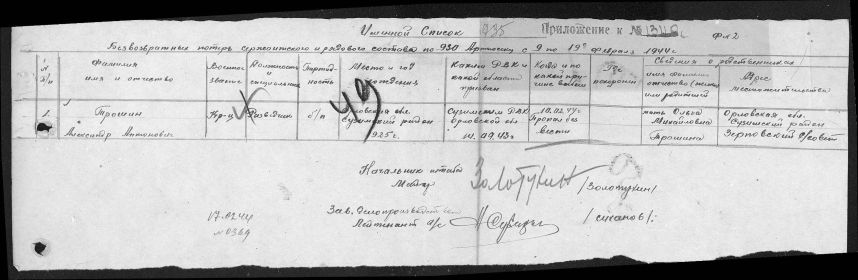 Именной Список 935 Приложение к № 1348с
Безвозвратных потерь сержантского и рядового состава по 930 Артполку с 9 по 19 февраля 1944 г.
№ п/п
Фамилия имя и отчество
Военное звание
Должность и специальность
Партийность
Место и год рождения
Каким РВК и какой области призван
Когда и по какой причине выбыл
Где похоронен
Сведения о родственниках
имя фамилия отчество (жены) или родителей
Адрес местожительства
1. Трошин Александр Антонович
Кр-ц
Разведчик
б/п
Орловская обл. Суземский район 1925 г.
Суземским РВК Орловской обл.
10.02.44 г. Пропал без вести
мать Ольга Михайловна Трошина
Орловская обл. Суземский район Зерновский с/совет
49
Начальник штаба
Майор Золотухин /Золотухин/
Зав. делопроизводством
Лейтенант а/с
17.0244